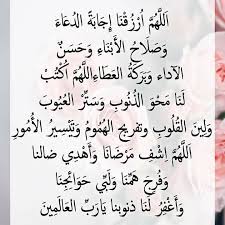 اَللَّهُمَّ اُرْزُقْنَا إِجَابَةَ الدُعَاءَ
وَصَلَاحُ الأَبْنَاءِ وَحَسَنٌ
الآداء وَبَرَكَةُ العَطَاءِاللَّهُمَّ اُكْتُبْ
لَنَا مَحْوَ الذُّنُوبِ وَسَتْرُ العُيُوبَ
وَلِينَ القُلُوبِ وتفريح الهُمُومُ وَتَيْسِيرُ الأُمُورِ
اَللَّهُمَّ اِشْفِ مَرْضَانَا وَأَهْدِي ضالنا
وَفُرِجَ هَمِّنَا وَلَبِّي حَوَائِجِنَا
وَأَغْفِرُ لَنَا ذنوبنا يَارَبِّ العَالَمِينَ